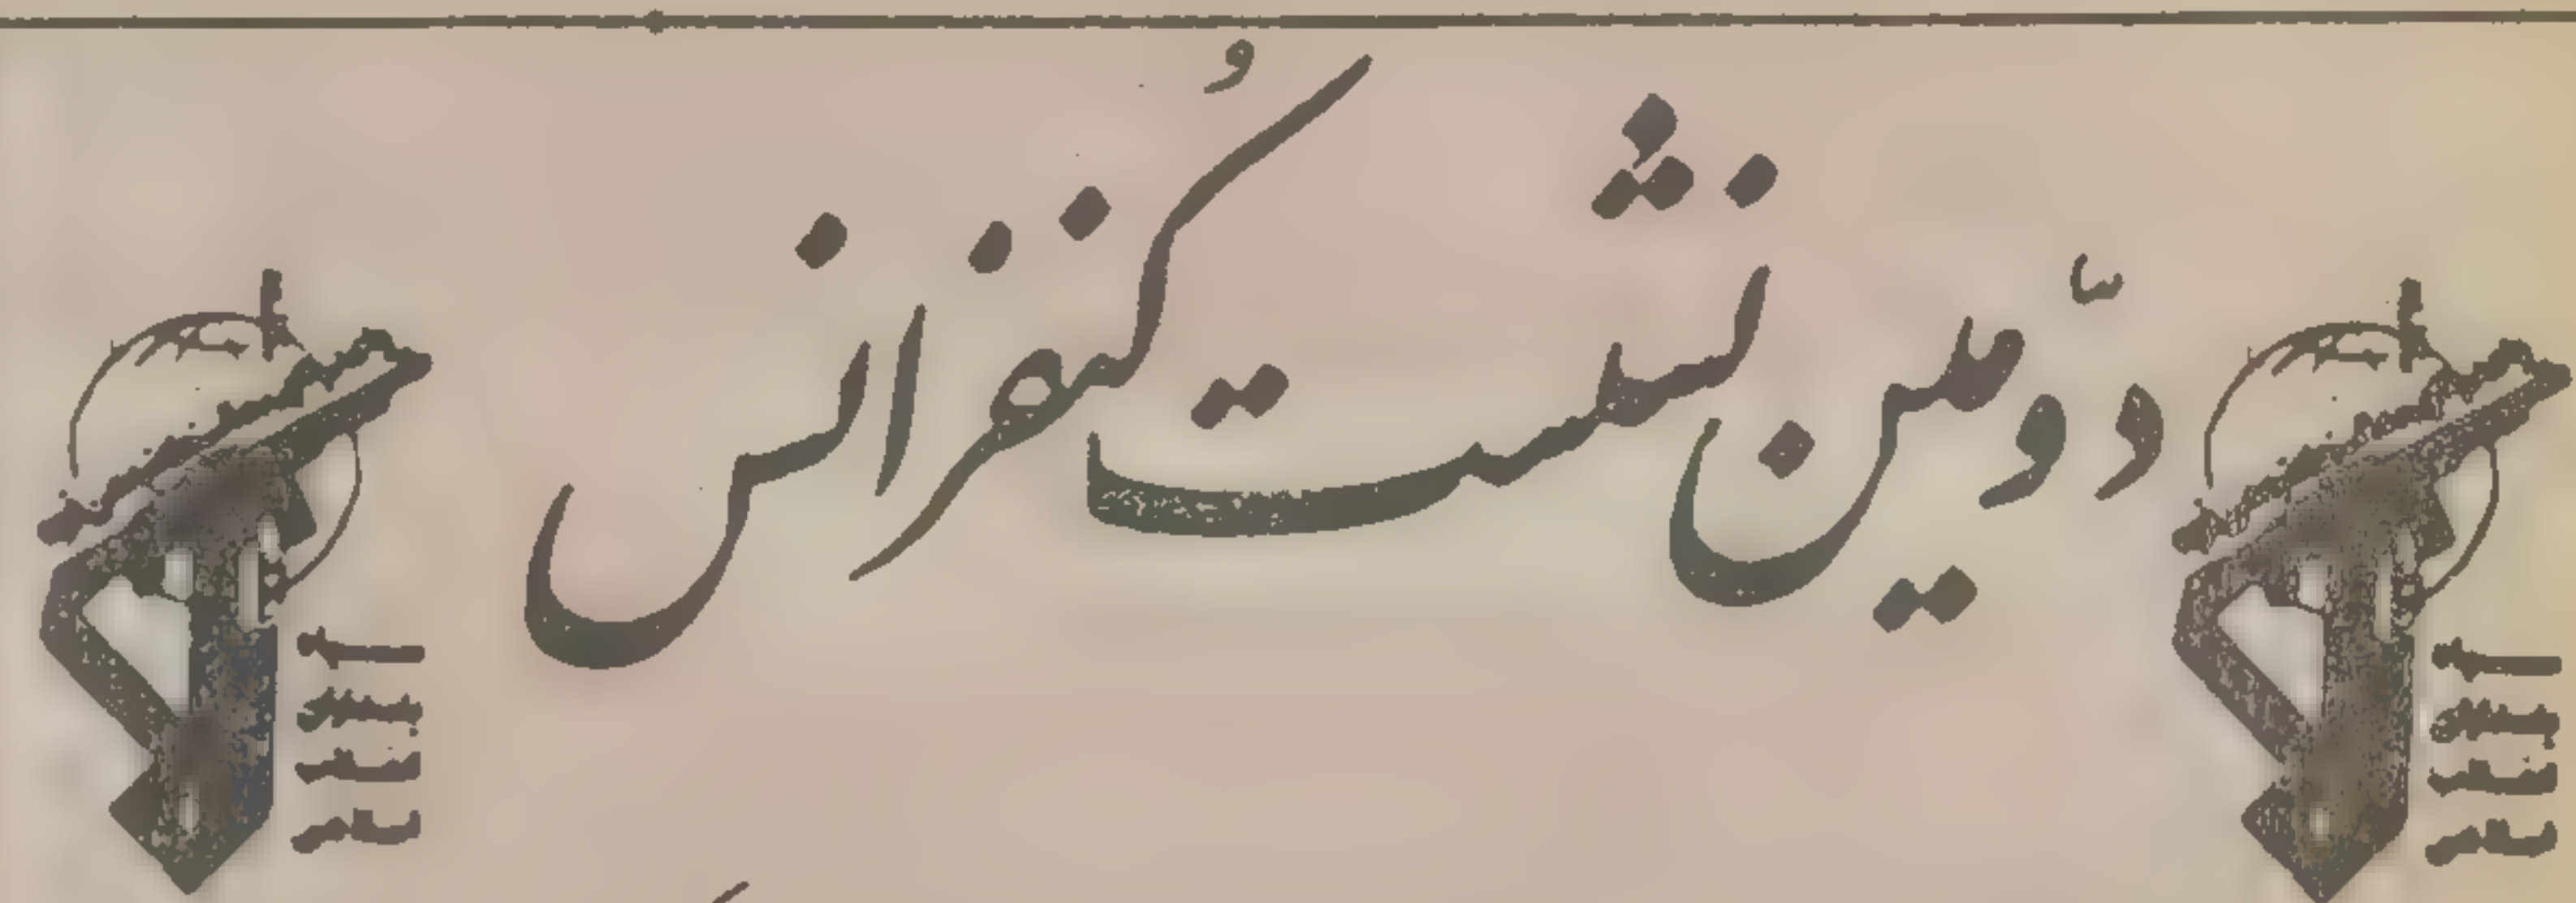 دوّمین نشست کُنفرانس